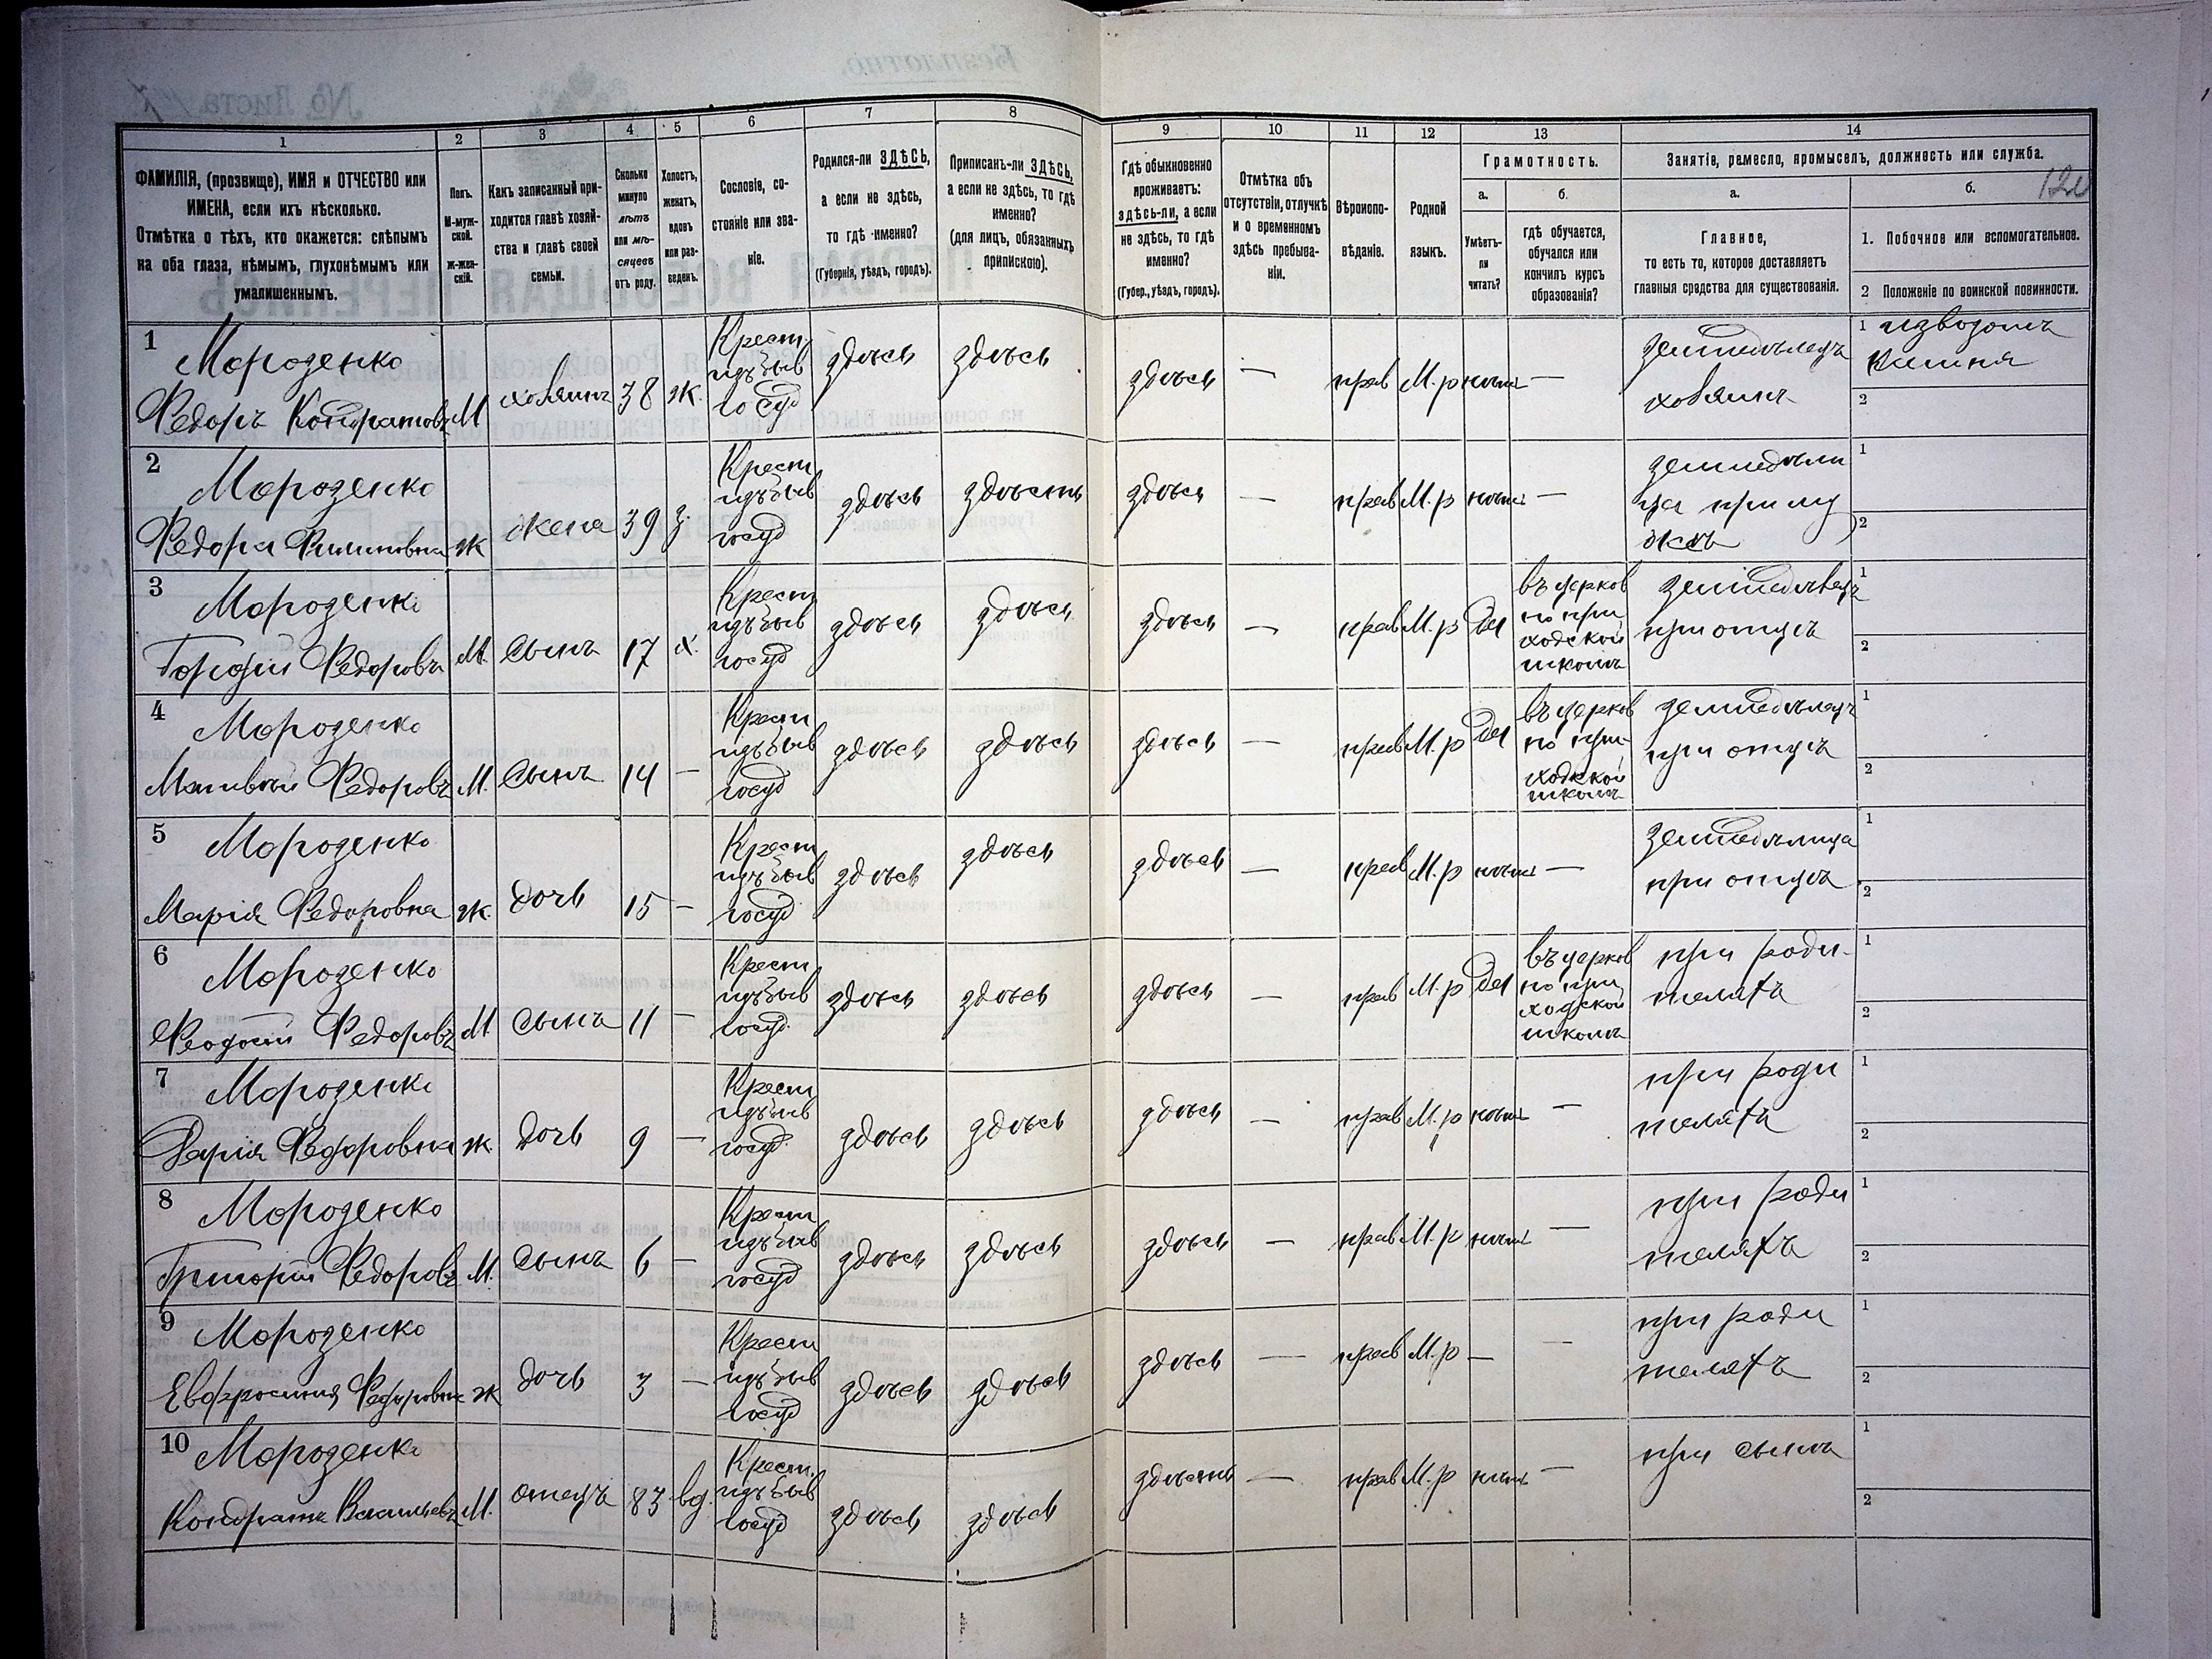 1 2 3 4 5 6 7 8 9 10 11 12 13 14
ФАМИЛІЯ, (прозвище), ИМЯ и ОТЧЕСТВО или
ИМЕНА, если ихъ нѣсколько.
Отмѣтка о тѣхъ, кто окажется: слѣпымъ
на оба глаза, нѣмымъ, глухонѣмымъ или
умалишеннымъ.
Полъ.
М-муж-
ской.
Ж-жен-
скій.
Какъ записанный при-
ходится главѣ хозяй-
ства и главѣ своей
семьи.
Сколько
минуло
лѣтъ
или мѣ-
сяцевъ
отъ роду.
Холостъ,
женатъ,
вдовъ
или раз-
веденъ.
Сословіе, со-
стояніе или зва-
ніе.
Родился-ли ЗДѢСЬ,
а если не здѣсь,
то гдѣ именно?
(Губернія, уѣздъ, городъ).
Приписанъ-ли ЗДѢСЬ,
а если не здѣсь, то гдѣ
именно?
(для лицъ, обязанныхъ
припискою).
Гдѣ обыкновенно
проживаетъ:
здѣсь-ли, а если
не здѣсь, то гдѣ
именно?
(Губер., уѣздъ, городъ).
Отмѣтка объ
отсутствіи, отлучкѣ
и о временномъ
здѣсь пребыва-
ніи.
Вѣроиспо-
вѣданіе.
Родной
языкъ.
Грамотность.
а.
Умѣетъ-
ли
читать?
б.
гдѣ обучается,
обучался или
кончилъ курсъ
образованія?
Занятіе, ремесло, промыселъ, должность или служба.
а.
Главное,
то есть то, которое доставляетъ
главныя средства для существованія.
б.
1. Побочное или вспомогательное.
2 Положеніе по воинской повинности.
1
Морозенко
Федоръ Кондратовъ М хозяинъ 38 ж.
Крест.
изъ быв
госуд
здѣсь здѣсь здѣсь — прав М.р нѣтъ —
земледѣлецъ
хозяинъ
1 извозомъ
камня
2
2
Морозенко
Федора Филиповна ж жена 39 з.
Крест
изъ быв
госуд
здѣсь здѣсь здѣсь — прав М.р нѣтъ —
земледѣли
ца при му
жѣ
1
2
3
Морозенко
Гордѣй Федоровъ М. Сынъ 17 х.
Крест
изъ быв
госуд
здѣсь здѣсь здѣсь — прав М.р Да
въ церков
но при
ходской
школѣ
земледѣлецъ
при отцѣ
1
2
4
Морозенко
Матвѣй Федоровъ М. Сынъ 14 —
Крест
изъ быв
госуд
здѣсь здѣсь здѣсь — прав М.р Да
въ церков
но при-
ходской
школѣ
земледѣлецъ
при отцѣ
1
2
5
Морозенко
Марія Федоровна ж. дочь 15 —
Крест
изъ быв
госуд
здѣсь здѣсь здѣсь — прав М.р нѣтъ —
земледѣлица
при отцѣ
1
2
6
Морозенко
Феодосій Федоровъ М Сынъ 11 —
Крест
изъ быв
госуд.
здѣсь здѣсь здѣсь — прав М.р Да
въ церков
но при
ходской
школѣ
при роди-
теляхъ
1
2
7
Морозенко
Дарія Федоровна ж. дочь 9 —
Крест
изъ быв
госуд.
здѣсь здѣсь здѣсь — прав М.р нѣтъ —
при роди
теляхъ
1
2
8
Морозенко
Григорій Федоровъ М. Сынъ 6 —
Крест
изъ быв
госуд
здѣсь здѣсь здѣсь — прав М.р нѣтъ —
при роди
теляхъ
1
2
9
Морозенко
Евфросинія Федоровна ж дочь 3 —
Крест
изъ быв
госуд
здѣсь здѣсь здѣсь — прав М.р — —
при роди
теляхъ
1
2
10
Морозенко
Кондратъ Васильевъ М. отецъ 83 вд.
Крест.
изъ быв
госуд
здѣсь здѣсь здѣсь — прав М.р нѣтъ —
при сынѣ
1
2